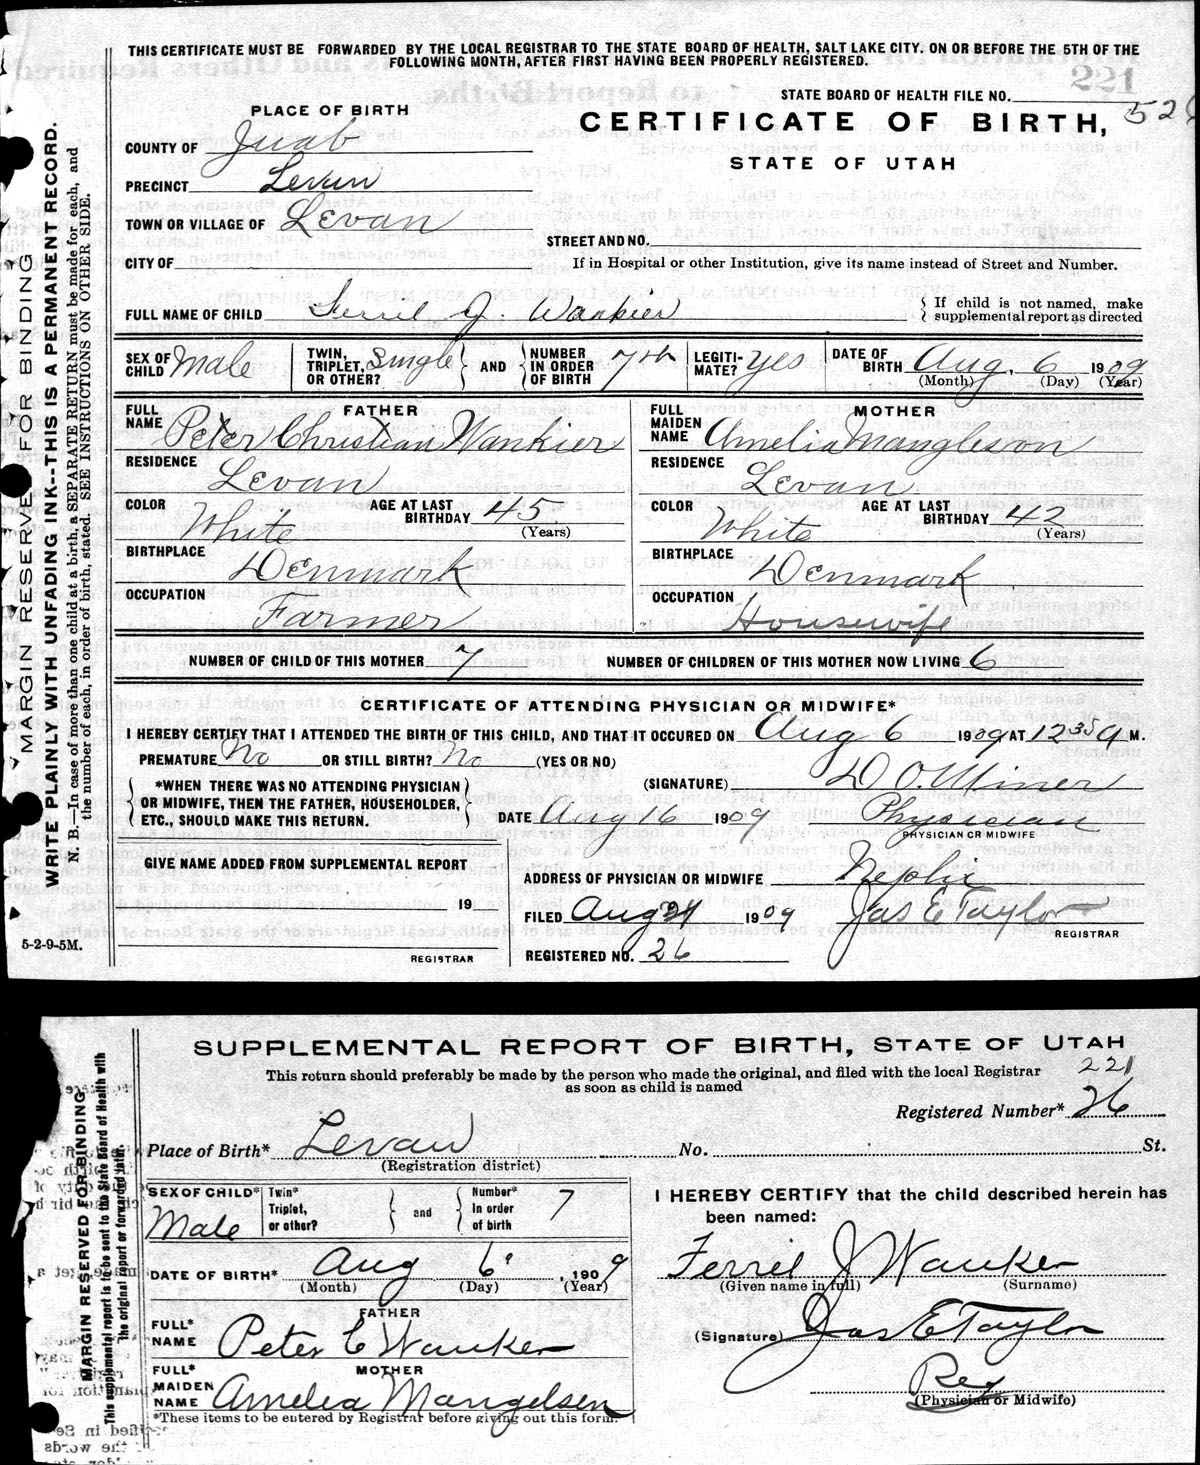 THIS CERTIFICATE MUST BE FORWARDED BY THE LOCAL REGISTRAR TO THE STATE BOARD OF HEALTH, SALT LAKE CITY. ON OR BEFORE THE 5TH OF THE
FOLLOWING MONTH, AFTER FIRST HAVING BEEN PROPERLY REGISTERED.
221
STATE BOARD OF HEALTH FILE NO.
PLACE OF BIRTH
CERTIFICATE OF BIRTH,
STATE OF UTAH
COUNTY OF Juab
PRECINCT Levan
TOWN OR VILLAGE OF Levan
STREET AND NO.
CITY OF
If in Hospital or other Institution, give its name instead of Street and Number.
FULL NAME OF CHILD Ferril J. Wankier
If child is not named, make
supplemental report as directed
SEX OF CHILD Male
TWIN, TRIPLET, OR OTHER? Single AND NUMBER IN ORDER OF BIRTH 7th
LEGITIMATE? yes
DATE OF BIRTH Aug. 6 1909
(Month) (Day) (Year)
FATHER
FULL NAME Peter Christian Wankier
RESIDENCE Levan
COLOR White AGE AT LAST BIRTHDAY 45
(Years)
BIRTHPLACE Denmark
OCCUPATION Farmer
MOTHER
FULL MAIDEN NAME Amelia Mangleson
RESIDENCE Levan
COLOR White AGE AT LAST BIRTHDAY 42
(Years)
BIRTHPLACE Denmark
OCCUPATION Housewife
NUMBER OF CHILD OF THIS MOTHER 7 NUMBER OF CHILDREN OF THIS MOTHER NOW LIVING 6
CERTIFICATE OF ATTENDING PHYSICIAN OR MIDWIFE*
I HEREBY CERTIFY THAT I ATTENDED THE BIRTH OF THIS CHILD, AND THAT IT OCCURED ON Aug 6 1909 AT 12 35 A M.
PREMATURE No OR STILL BIRTH? No (YES OR NO)
*WHEN THERE WAS NO ATTENDING PHYSICIAN
OR MIDWIFE, THEN THE FATHER, HOUSEHOLDER,
ETC., SHOULD MAKE THIS RETURN.
(SIGNATURE) D O. Miner
DATE Aug 16 1909 Physician
PHYSICIAN OR MIDWIFE
GIVE NAME ADDED FROM SUPPLEMENTAL REPORT
19
REGISTRAR
ADDRESS OF PHYSICIAN OR MIDWIFE Nephi
FILED Aug 1909 Jas E Taylor
REGISTRAR
REGISTERED NO. 26
5-2-9-5M.
MARGIN RESERVE FOR BINDING
WRITE PLAINLY WITH UNFADING INK--THIS IS A PERMANENT RECORD.
N. B.—In case of more than one child at a birth, a SEPARATE RETURN must be made for each, and
the number of each, in order of birth, stated. SEE INSTRUCTIONS ON OTHER SIDE.
SUPPLEMENTAL REPORT OF BIRTH, STATE OF UTAH
This return should preferably be made by the person who made the original, and filed with the local Registrar
as soon as child is named
221
Registered Number* 26
Place of Birth* Levan No. St.
(Registration district)
SEX OF CHILD* Male
Twin* Triplet, or other? and Number* In order of birth 7
DATE OF BIRTH* Aug 6 , 1909
(Month) (Day) (Year)
FATHER
FULL* NAME Peter C Wankier
MOTHER
FULL* MAIDEN NAME Amelia Mangelsen
*These items to be entered by Registrar before giving out this form.
I HEREBY CERTIFY that the child described herein has
been named:
Ferril J Wankier
(Given name in full) (Surname)
(Signature) Jas E Taylor
Reg
(Physician or Midwife)
MARGIN RESERVED FOR BINDING
This supplemental report is to be sent to the State Board of Health with
the original report or forwarded later.